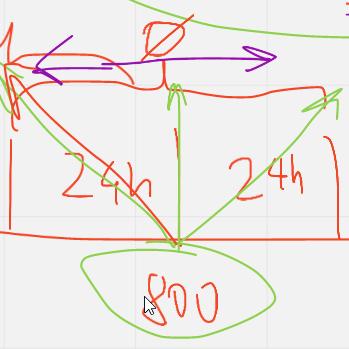 0
24h 24h
800